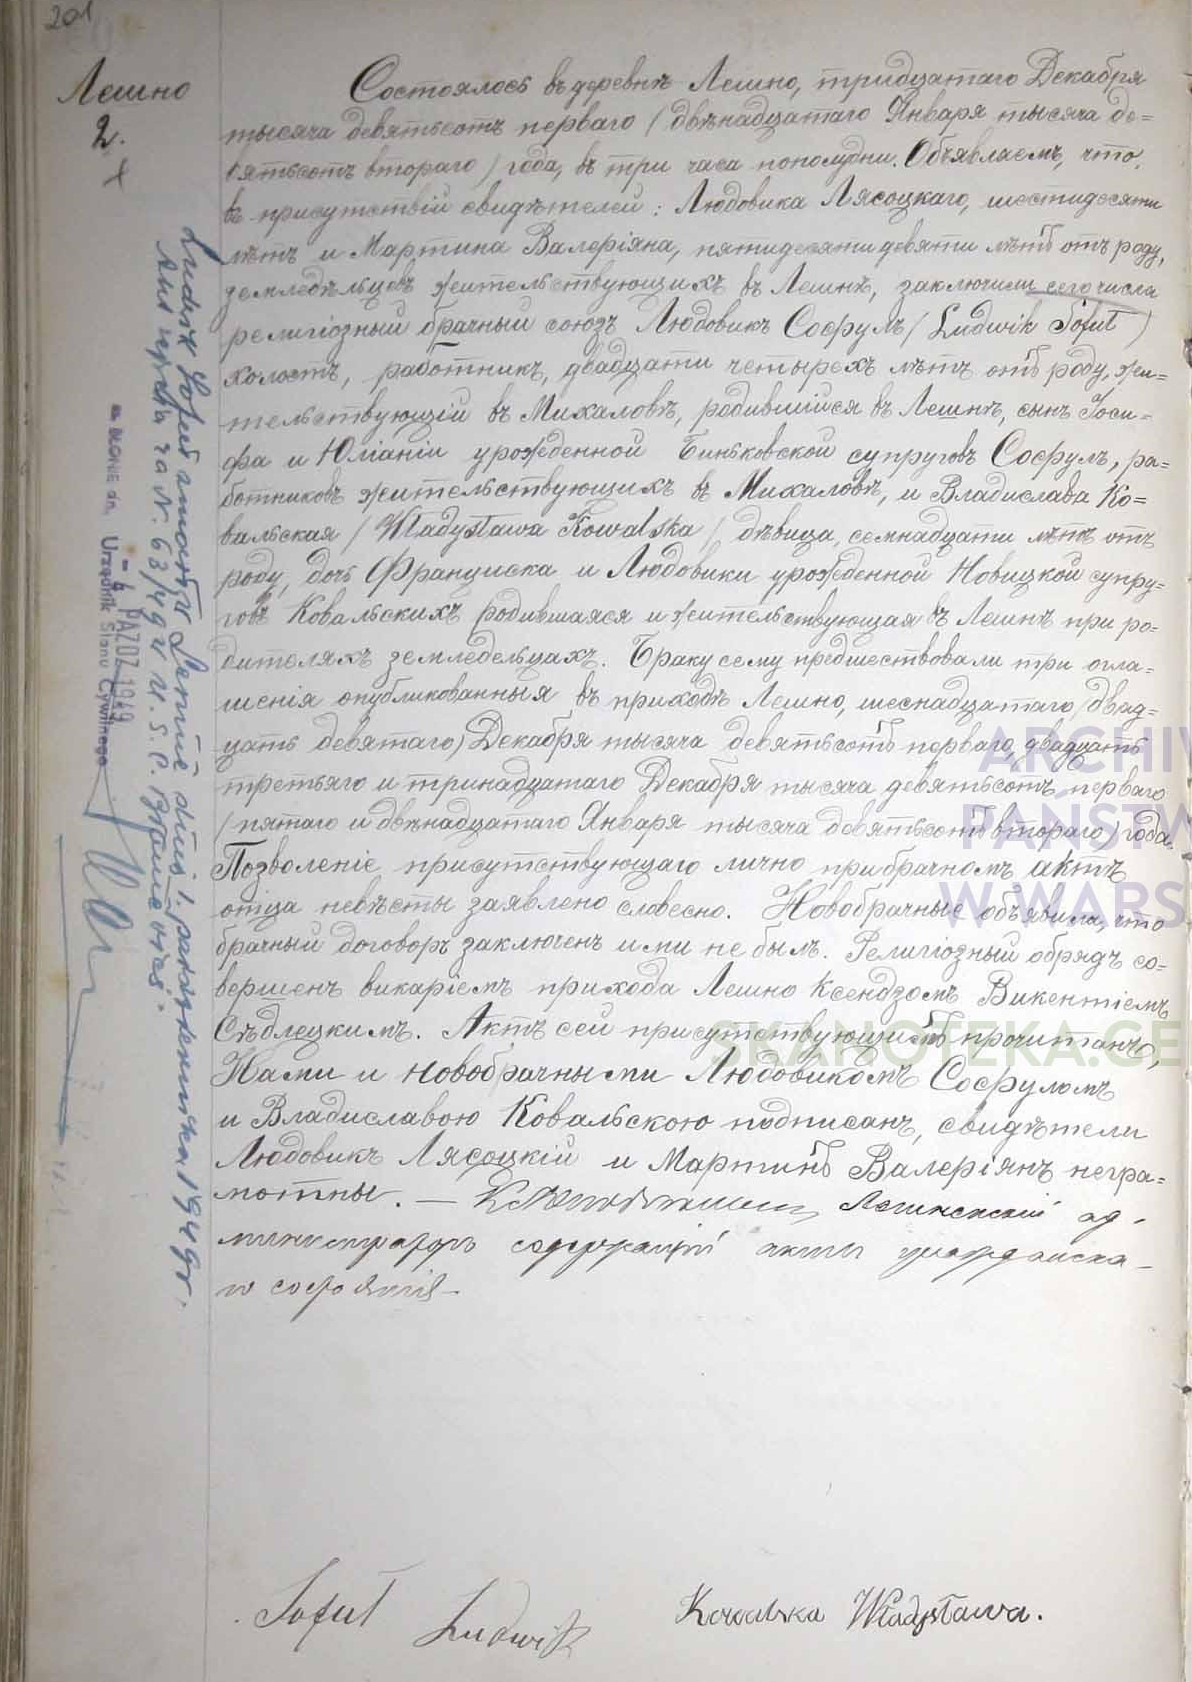 201
Лешно
2.
Состоялось въ деревнѣ Лешно, тридцатаго Декабря
тысяча девятьсотъ перваго / двѣнадцатаго Января тысяча де=
вятьсотъ втораго / года, въ три часа пополудни. Объявляемъ, что
въ присутствіи свидѣтелей: Людовика Лясоцкаго, шестидесяти
лѣтъ и Мартина Валеріяна, пятидесяти девяти лѣтъ отъ роду,
земледѣльцовъ жительствующихъ въ Лешнѣ, заключили сего числа
религіозный брачный союзъ Людовикъ Софулъ / Ludwik Sofuł /
холостъ, работникъ, двадцати четырехъ лѣтъ отъ роду, жи=
тельствующій въ Михаловѣ, родившійся въ Лешнѣ, сынъ Іоси=
фа и Юліаніи урожденной Биньковской супруговъ Софулъ, ра=
ботниковъ жительствующихъ въ Михаловѣ, и Владислава Ко=
вальская / Władysława Kowalska / дѣвица, семнадцати лѣтъ отъ
роду, дочь Франциска и Людовики урожденной Новицкой супру=
говъ Ковальскихъ родившаяся и жительствующая въ Лешнѣ при ро=
дителяхъ земледельцахъ. Браку сему предшествовали три огла=
шенія опубликованныя въ приходѣ Лешно, шеснадцатаго / двад=
цать девятаго / Декабря тысяча девятьсотъ перваго, двадцать
третьяго и тринадцатаго Декабря тысяча девятьсотъ перваго
/ пятаго и двѣнадцатаго Января тысяча девятьсотъ втораго / года.
Позволеніе присутствующаго лично при брачномъ актѣ
отца невѣсты заявлено словесно. Новобрачные объявили, что
брачный договоръ заключенъ ими не былъ. Религіозный обрядъ со=
вершенъ викаріемъ прихода Лешно Ксендзомъ Викентіемъ
Сѣдлецкимъ. Актъ сей присутствующимъ прочитанъ,
Нами и новобрачными Людовикомъ Софуломъ
и Владиславою Ковальскою подписанъ, свидѣтели
Людовикъ Лясоцкій и Мартинъ Валеріянъ негра=
мотны. — Лешнскій ад-
министраторъ содержащій акты гражданска-
го состоянія.
Soful Ludwik
Kowalska Władysława.
Ludwik Soful zmarł
1949r.
za N. 63/49r U.S.C.
w BŁONIE dn.
- 6 PAZDZ 1949
Urzędnik Stanu Cywilnego
ARCHIW
PAŃSTW
W WARS
SKANOTEKA.GE